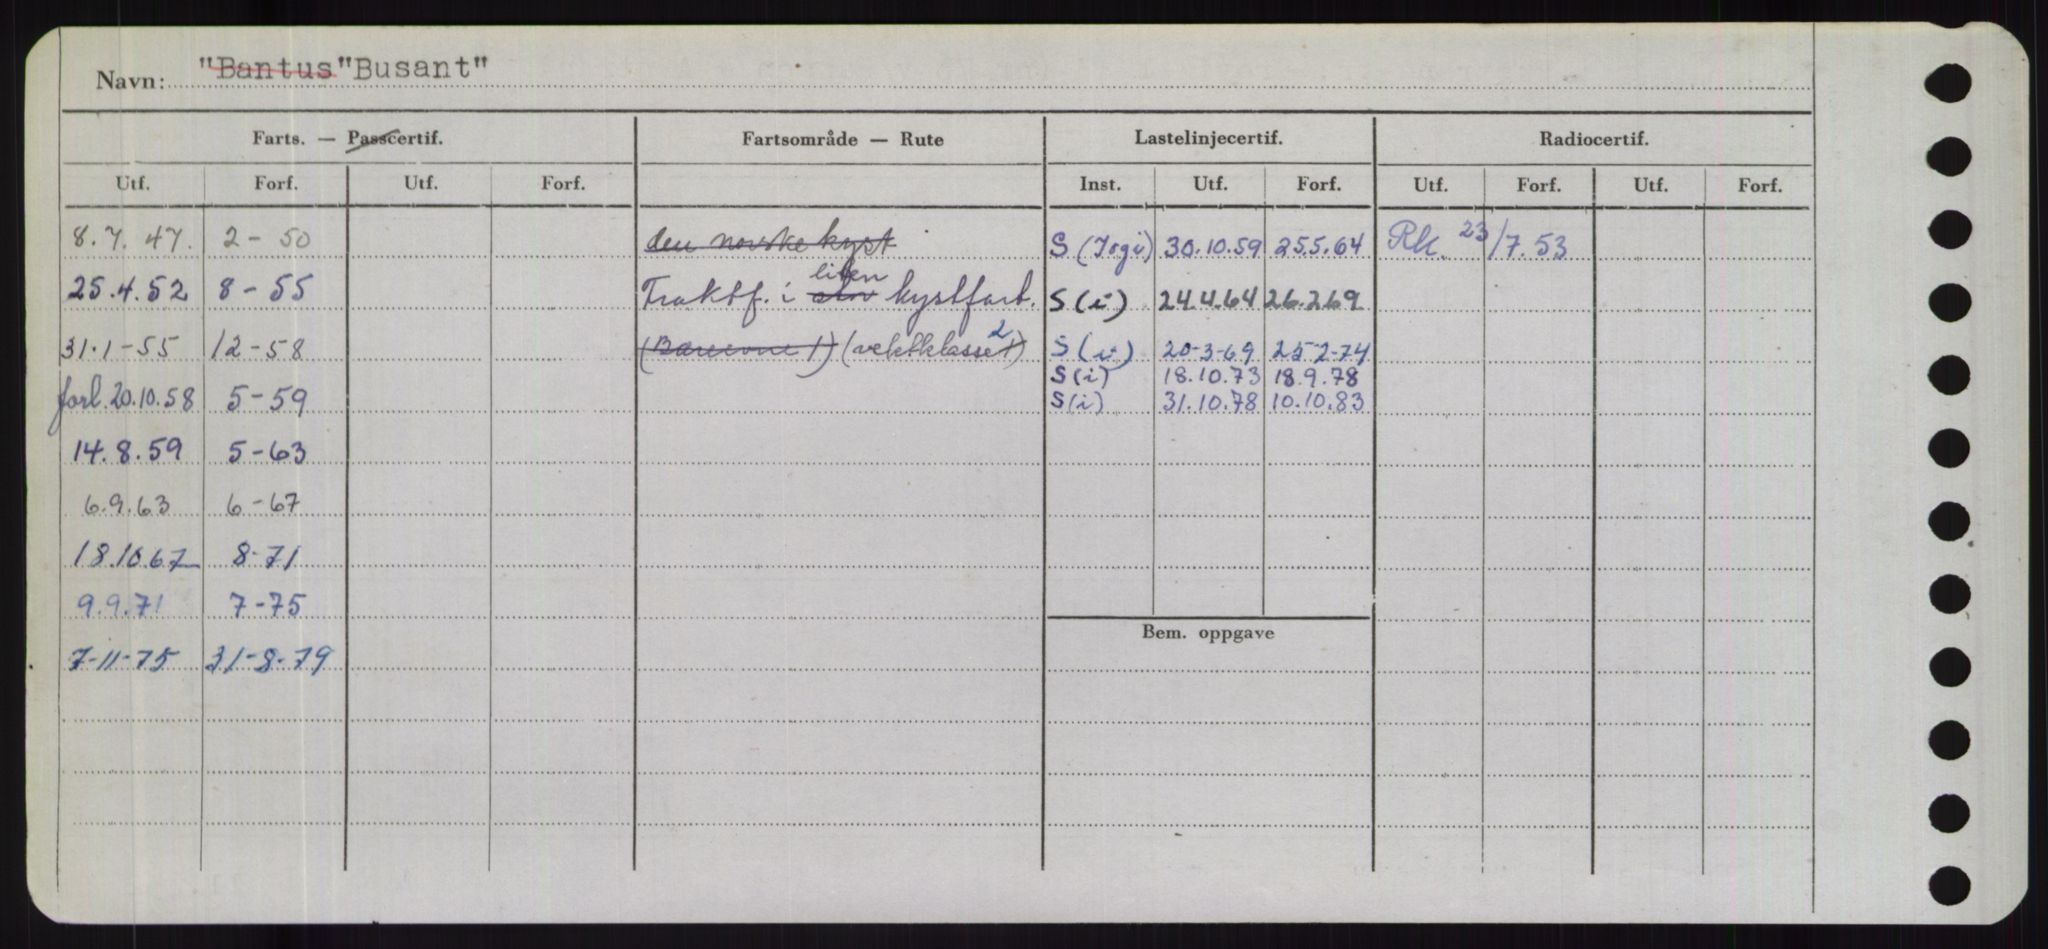 Navn: "Bantus" "Busant"
Farts. — Passcertif. Fartsområde — Rute Lastelinjecertif. Radiocertif.
Utf. Forf. Utf. Forf. Inst. Utf. Forf. Utf. Forf. Utf. Forf.
8.7.47. 2-50 den norske kyst S (Irgi) 30.10.59 25.5.64 Rk. 23/7.53
liten
25.4.52 8-55 Traktf. i stor kystfart. S (i) 24.4.64 26.2.69
31.1-55 12-58 (Bæreevne 1) (vektklasse 1) 2 S (i) 20-3-69 25-2-74
S (i) 18.10.73 18.9.78
forl. 20.10.58 5-59 S (i) 31.10.78 10.10.83
14.8.59 5-63
6.9.63 6-67
18.10.67 8-71
9.9.71 7-75
Bem. oppgave
7-11-75 31-8-79